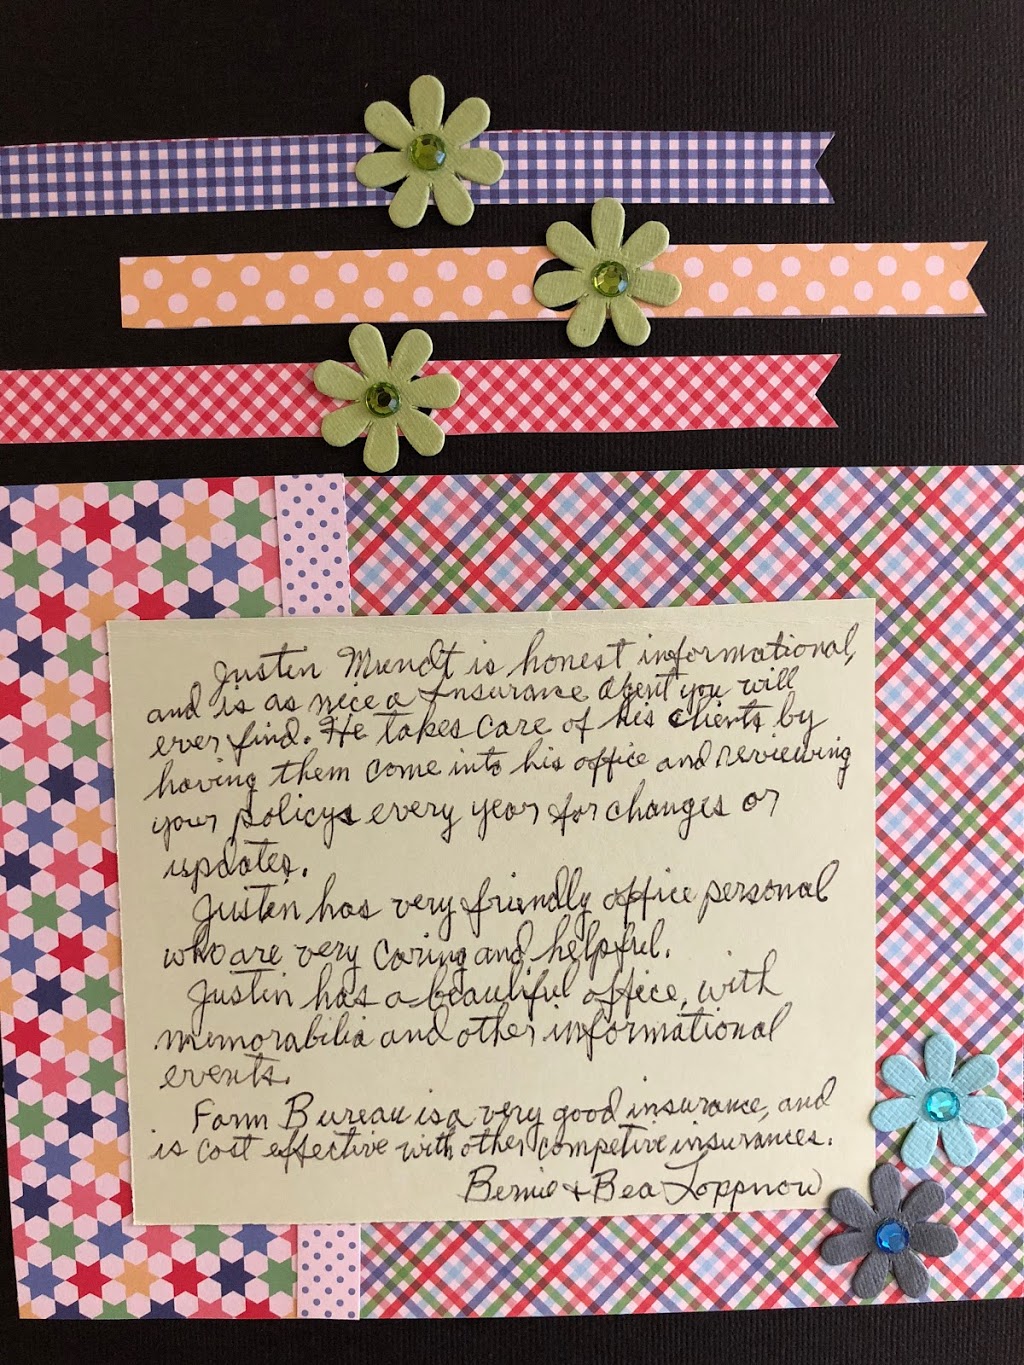 Justin Mundt is honest informational,
and is as nice a Insurance agent you will
ever find. He takes care of his clients by
having them come into his office and reviewing
your policys every year for changes or
updates.
Justin has very friendly office personal
who are very caring and helpful.
Justin has a beautiful office, with
memorabilia and other informational
events.
Farm Bureau is a very good insurance, and
is cost effective with other competive insurances.
Bernie + Bea Loppnow